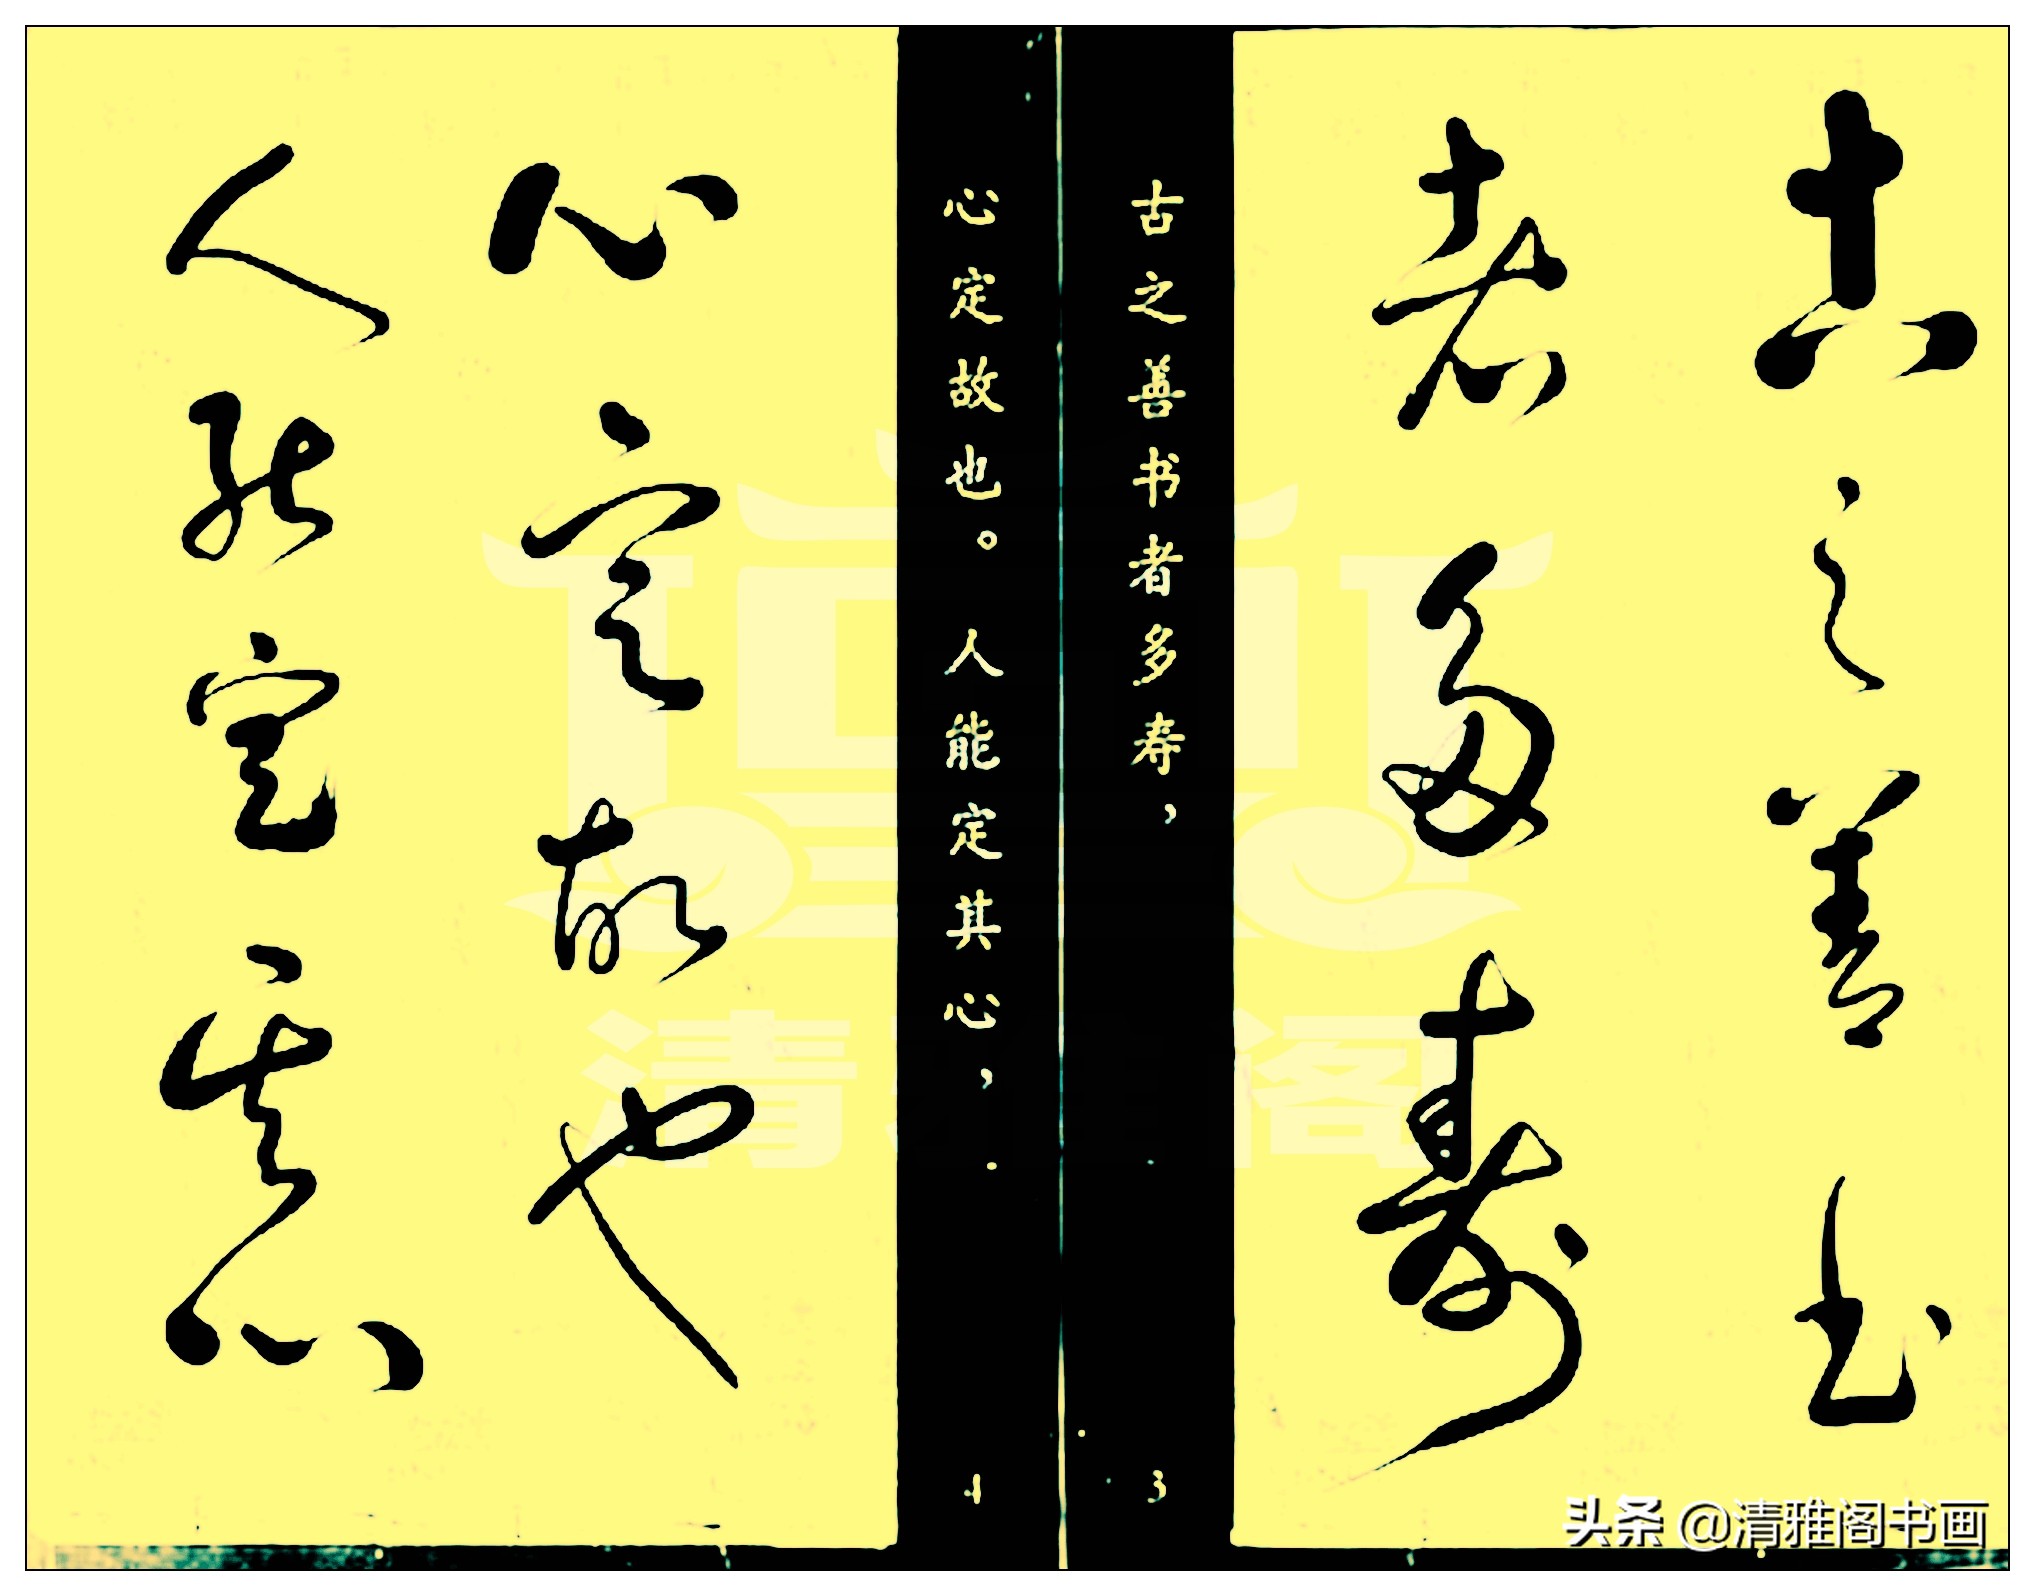 古之善书
者多寿
古之善书者多寿，
3
心定故也。人能定其心，
4
心定故也
人能定其心
清雅阁
头条 @清雅阁书画